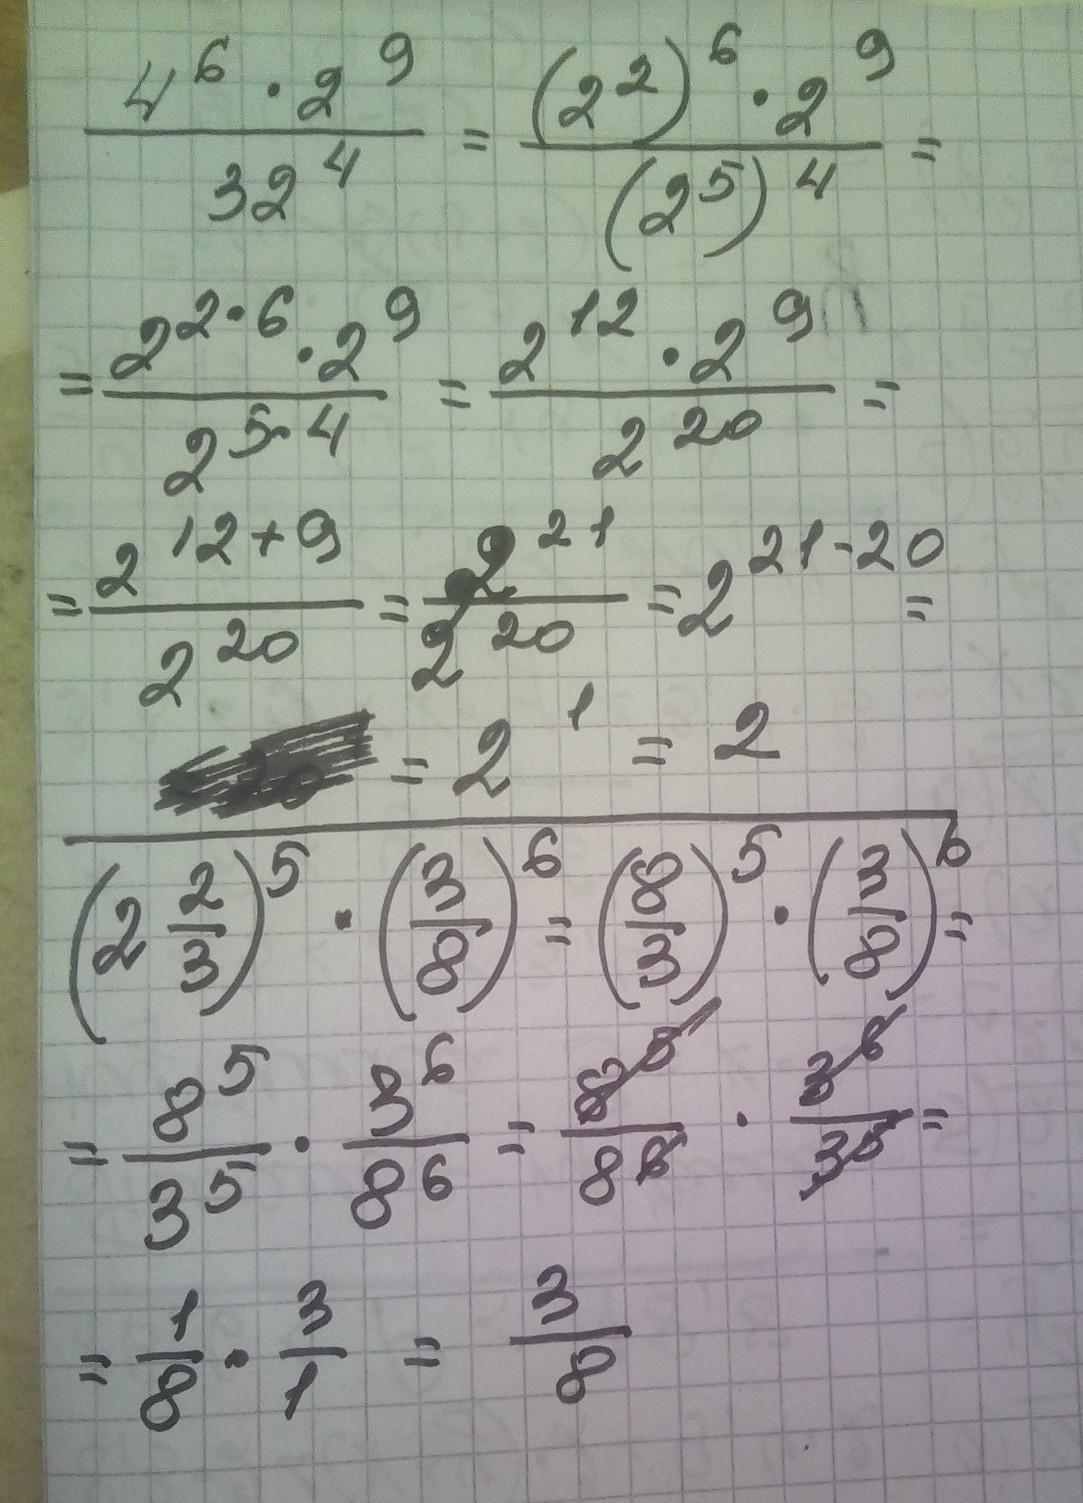 4^6 · 2^9 / 32^4 = (2^2)^6 · 2^9 / (2^5)^4 =
= 2^{2·6} · 2^9 / 2^{5·4} = 2^{12} · 2^9 / 2^{20} =
= 2^{12+9} / 2^{20} = 2^{21} / 2^{20} = 2^{21-20} =
= 2^1 = 2
(2 2/3)^5 · (3/8)^6 = (8/3)^5 · (3/8)^6 =
= 8^5/3^5 · 3^6/8^6 = 8^5/8^6 · 3^6/3^5 =
= 1/8 · 3/1 = 3/8